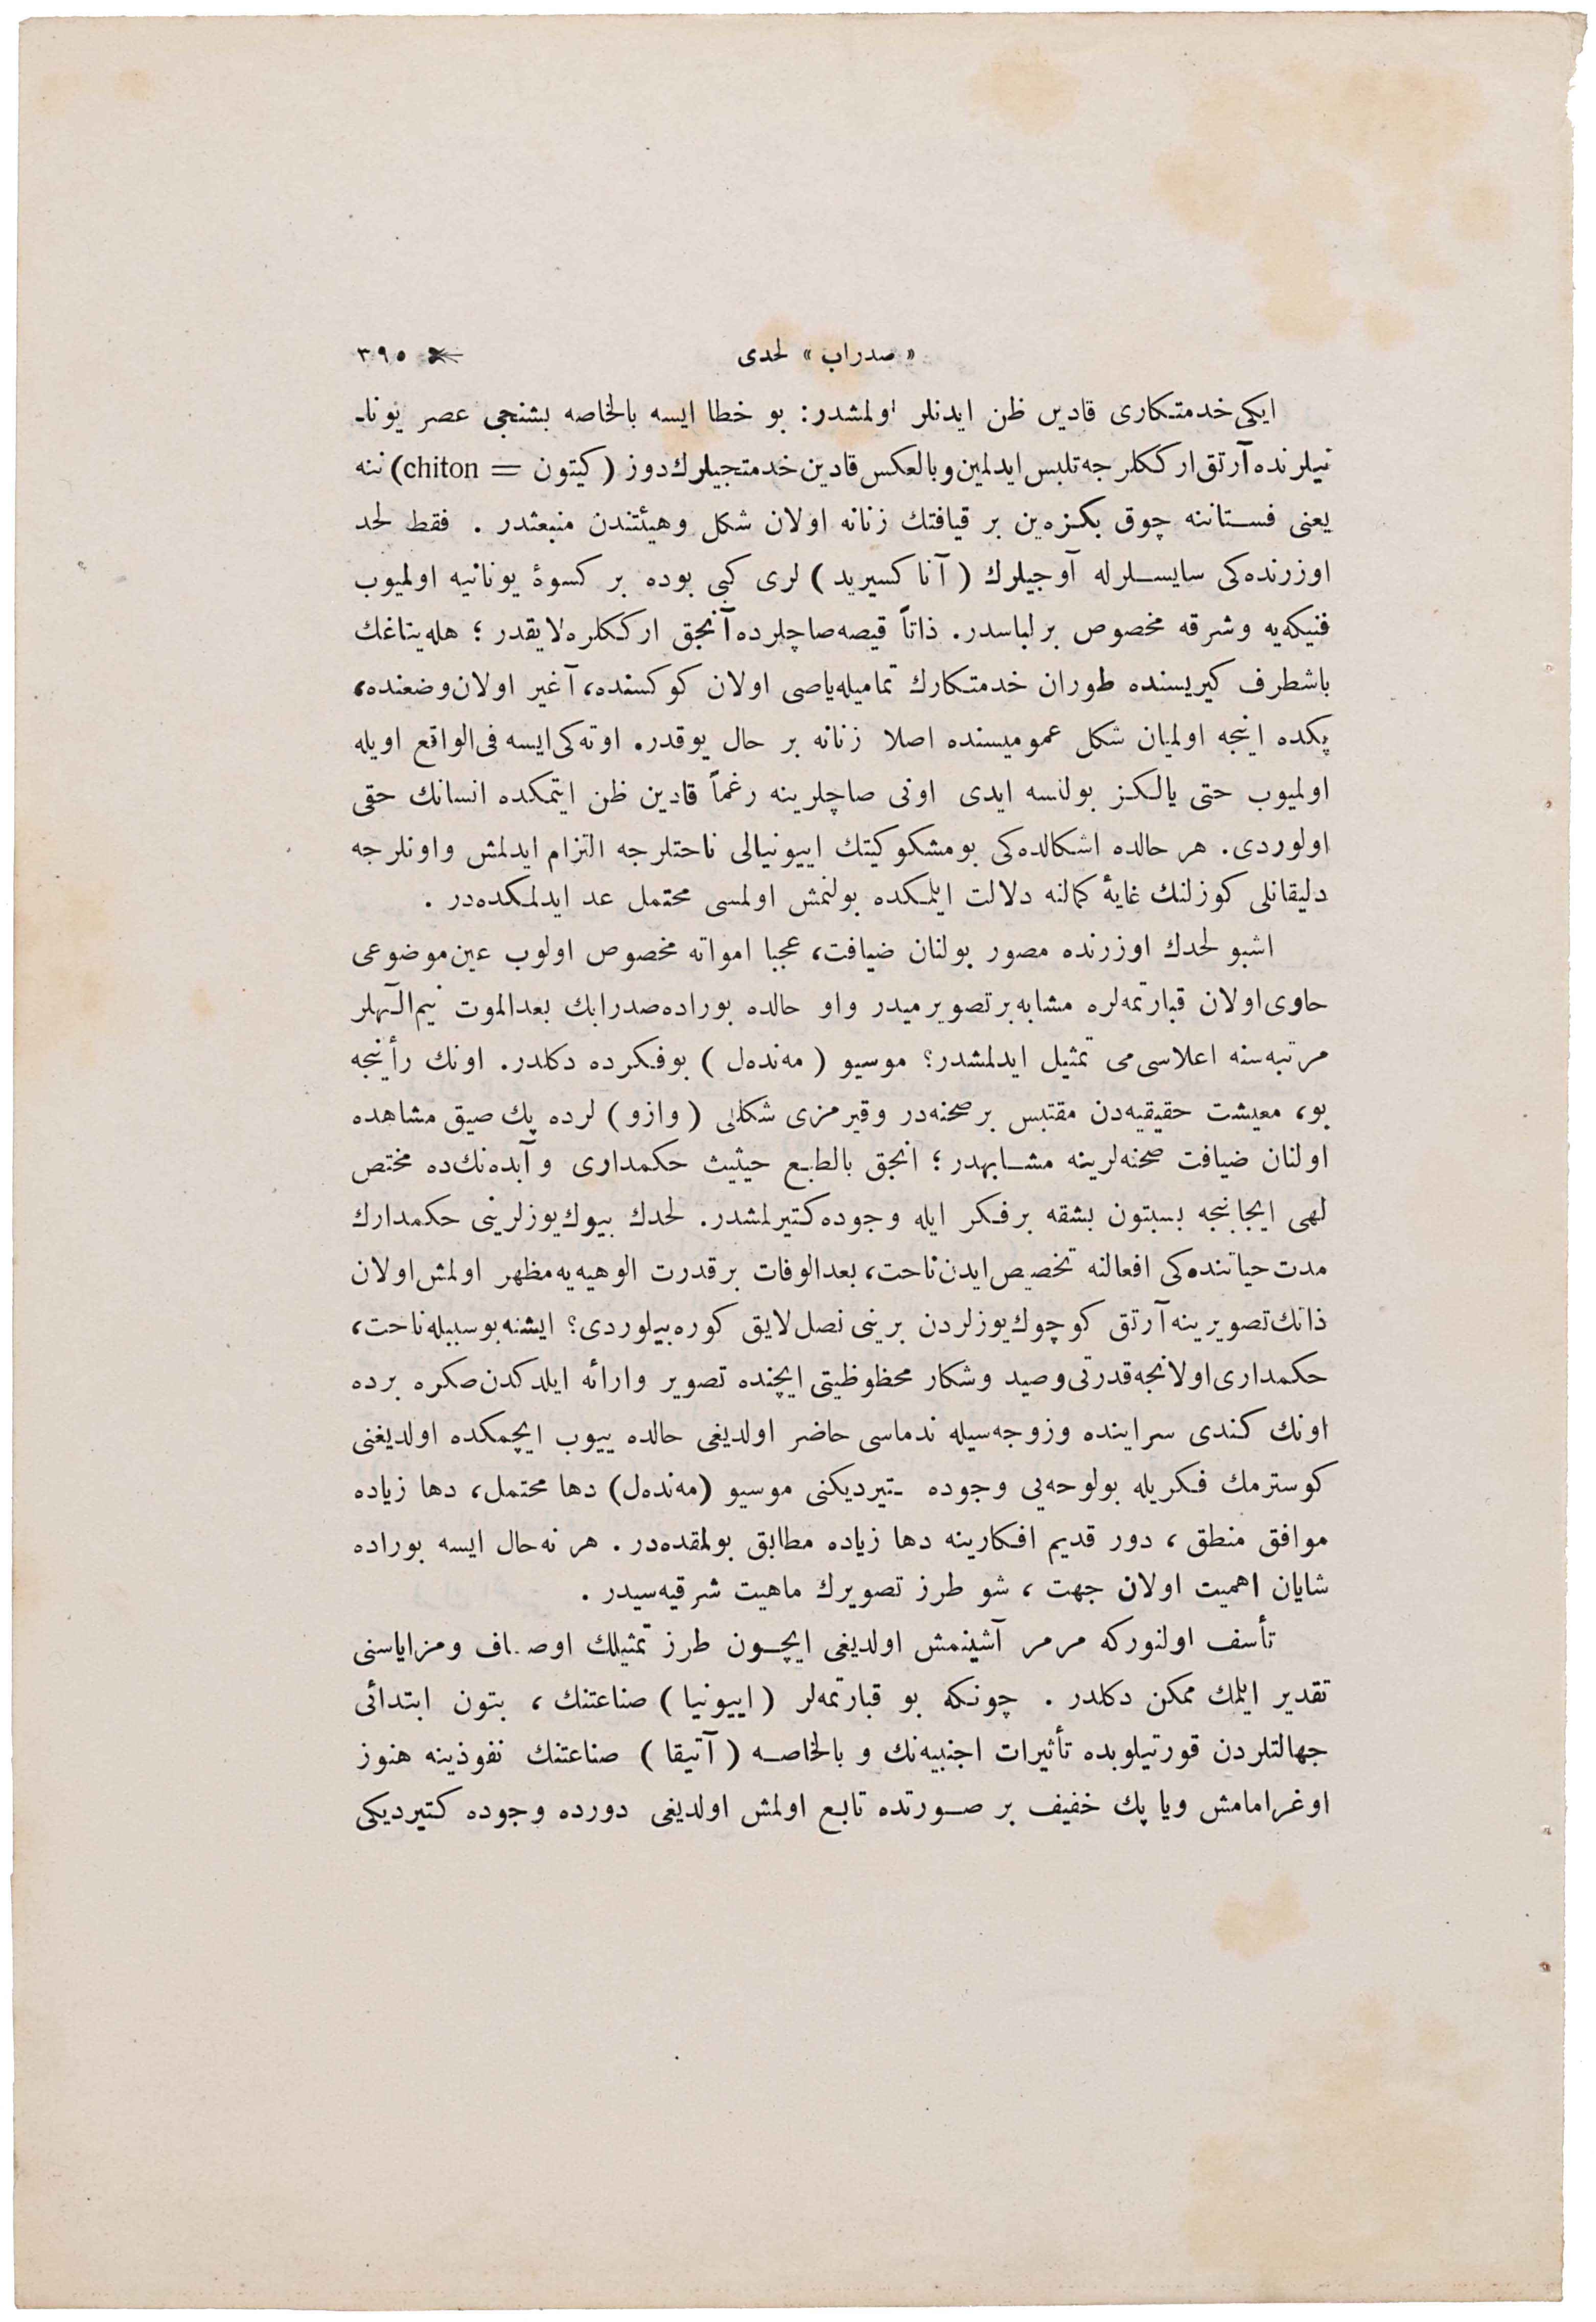 « صدراب » لحدی ٣٩٥
ایکی خدمتکاری قادین ظن ایدنلر اولمشدر: بو خطا ایسه بالخاصه بشنجی عصر یونا-
نیلرنده آرتق ارککلرجه تلبس ایدلمین و بالعکس قادین خدمتجیلرك دوز ( کیتون = chiton) ننه
یعنی فستاننه چوق بکزه‌ین بر قیافتك زنانه اولان شکل وهیئتندن منبعثدر . فقط لحد
اوزرنده‌کی سایسلرله آوجیلرك ( آناکسیرید ) لری کبی بوده بر کسوهٔ یونانیه اولمیوب
فنیکه‌یه وشرقه مخصوص بر لباسدر. ذاتاً قیصه صاچلرده آنجق ارککلره لایقدر ؛ هله یتاغك
باشطرف کیریسنده طوران خدمتکارك تمامیله یاصی اولان کوکسنده، آغیر اولان وضعنده،
پکده اینجه اولمیان شکل عمومیسنده اصلا زنانه بر حال یوقدر. اوته‌کی ایسه فی‌الواقع اویله
اولمیوب حتی یالکز بولنسه ایدی اونی صاچلرینه رغماً قادین ظن ایتمکده انسانك حقی
اولوردی. هر حالده اشکالده‌کی بو مشکوکیتك اییونیالی ناحتلرجه التزام ایدلمش واونلرجه
دلیقانلی کوزلنك غایهٔ کمالنه دلالت ایلمکده بولنمش اولمسی محتمل عد ایدلمکده‌در .
اشبو لحدك اوزرنده مصور بولنان ضیافت، عجبا امواته مخصوص اولوب عین موضوعی
حاوی اولان قبارتمه‌لره مشابه بر تصویر میدر واو حالده بوراده صدرابك بعدالموت نیم آلٓهلر
مرتبه‌سنه اعلاسی می تمثیل ایدلمشدر؟ موسیو ( مه‌نده‌ل ) بو فکرده دکلدر. اونك رأینجه
بو، معیشت حقیقیه‌دن مقتبس بر صحنه‌در وقیرمزی شکللی ( وازو ) لرده پك صیق مشاهده
اولنان ضیافت صحنه‌لرینه مشابهدر ؛ انجق بالطبع حیثیت حکمداری و آبده‌نك‌ده مختص
لهی ایجابنجه بسبتون بشقه بر فکر ایله وجوده کتیرلمشدر. لحدك بیوك یوزلرینی حکمدارك
مدت حیاتنده‌کی افعالنه تخصیص ایدن ناحت، بعدالوفات بر قدرت الوهیه‌یه مظهر اولمش اولان
ذاتك تصویرینه آرتق کوچوك یوزلردن برینی نصل لایق کوره‌بیلوردی؟ ایشته بو سببله ناحت،
حکمداری اولانجه قدرتی وصید وشکار محظوظیتی ایچنده تصویر وارائه ایلدکدن صکره برده
اونك کندی سراینده وزوجه‌سیله ندماسی حاضر اولدیغی حالده ییوب ایچمکده اولدیغنی
کوسترمك فکریله بو لوحه‌یی وجوده ـتیردیکنی موسیو (مه‌نده‌ل) دها محتمل، دها زیاده
موافق منطق ، دور قدیم افکارینه دها زیاده مطابق بولمقده‌در . هر نه حال ایسه بوراده
شایان اهمیت اولان جهت ، شو طرز تصویرك ماهیت شرقیه‌سیدر .
تأسف اولنورکه مرمر آشینمش اولدیغی ایچون طرز تمثیلك اوصاف ومزایاسنی
تقدیر ایلمك ممکن دکلدر . چونکه بو قبارتمه‌لر ( اییونیا ) صناعتنك ، بتون ابتدائی
جهالتلردن قورتیلوبده تأثیرات اجنبیه‌نك و بالخاصه ( آتیقا ) صناعتنك نفوذینه هنوز
اوغرامامش ویا پك خفیف بر صورتده تابع اولمش اولدیغی دورده وجوده کتیردیکی